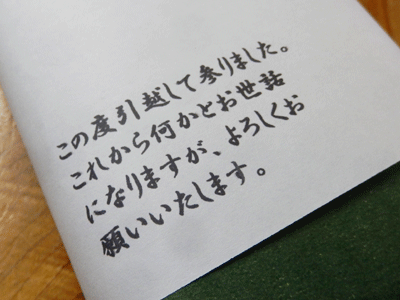 この度引越して参りました。
これから何かとお世話
になりますが、よろしくお
願いいたします。